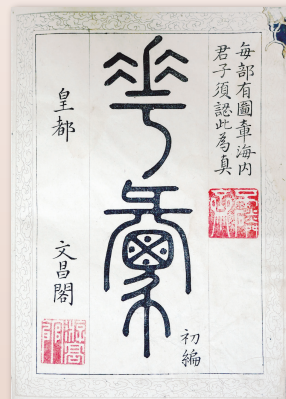 每部有圖章海内
君子須認此為真
花彙
初編
皇都 文昌閣